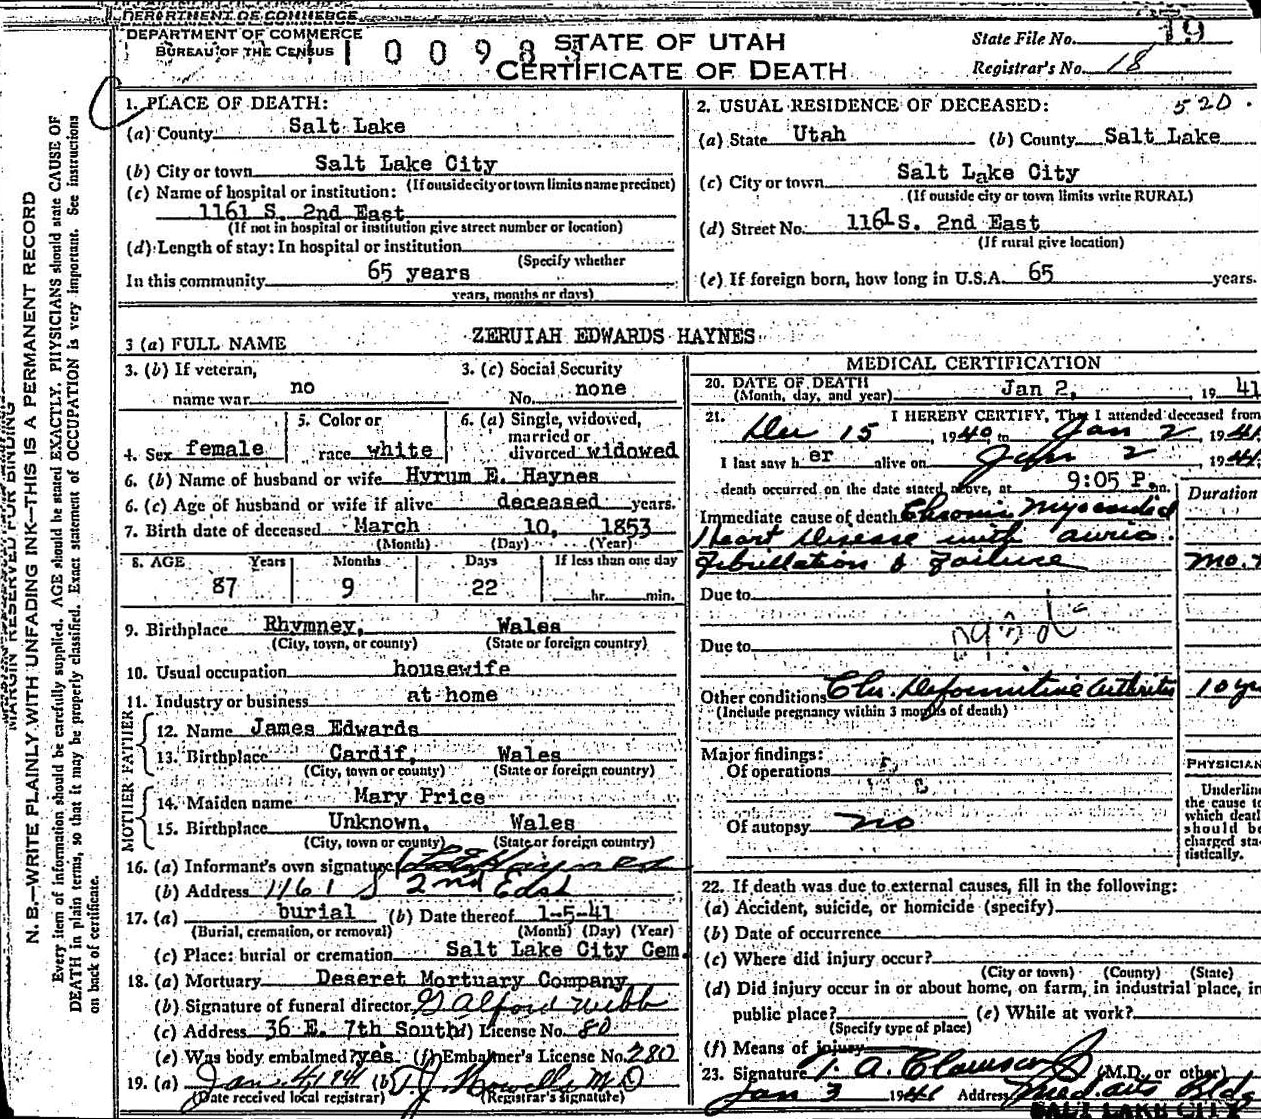 DEPARTMENT OF COMMERCE
DEPARTMENT OF COMMERCE
BUREAU OF THE CENSUS
1 0 0 9 8 3
STATE OF UTAH
CERTIFICATE OF DEATH
State File No. 19
Registrar's No. 18
1. PLACE OF DEATH:
(a) County Salt Lake
(b) City or town Salt Lake City
(If outside city or town limits name precinct)
(c) Name of hospital or institution:
1161 S. 2nd East
(If not in hospital or institution give street number or location)
(d) Length of stay: In hospital or institution
(Specify whether
In this community 65 years
years, months or days)
2. USUAL RESIDENCE OF DECEASED: 520.
(a) State Utah (b) County Salt Lake
(c) City or town Salt Lake City
(If outside city or town limits write RURAL)
(d) Street No. 1161 S. 2nd East
(If rural give location)
(e) If foreign born, how long in U.S.A. 65 years.
3 (a) FULL NAME ZERUIAH EDWARDS HAYNES
3. (b) If veteran, name war no
3. (c) Social Security No. none
4. Sex female
5. Color or race white
6. (a) Single, widowed, married or divorced widowed
6. (b) Name of husband or wife Hyrum E. Haynes
6. (c) Age of husband or wife if alive deceased years.
7. Birth date of deceased March 10, 1853
(Month) (Day) (Year)
8. AGE Years Months Days If less than one day
87 9 22 hr. min.
9. Birthplace Rhymney, Wales
(City, town, or county) (State or foreign country)
10. Usual occupation housewife
11. Industry or business at home
FATHER
12. Name James Edwards
13. Birthplace Cardif, Wales
(City, town or county) (State or foreign country)
MOTHER
14. Maiden name Mary Price
15. Birthplace Unknown, Wales
(City, town or county) (State or foreign country)
16. (a) Informant's own signature Haynes
(b) Address 1161 S 2nd East
17. (a) burial (b) Date thereof 1-5-41
(Burial, cremation, or removal) (Month) (Day) (Year)
(c) Place: burial or cremation Salt Lake City Cem.
18. (a) Mortuary Deseret Mortuary Company
(b) Signature of funeral director Alford Webb
(c) Address 36 E. 7th South (d) License No. 80
(e) Was body embalmed? yes (f) Embalmer's License No. 280
19. (a) Jan. 4, 1941 (b) T. J. Howells M D
(Date received local registrar) (Registrar's signature)
MEDICAL CERTIFICATION
20. DATE OF DEATH Jan 2, 19 41
(Month, day, and year)
21. I HEREBY CERTIFY, That I attended deceased from
Dec 15, 1940, to Jan 2 1941
I last saw h er alive on Jan 2 1941
death occurred on the date stated above, at 9:05 P. m.
Duration
Immediate cause of death Chronic Myocardial
Heart Disease with auric.
Fibrillation & Failure mo.
Due to
Due to
Other conditions Chr. Deformitive Arthritis 10 yr
(Include pregnancy within 3 months of death)
Major findings:
Of operations
Of autopsy no
PHYSICIAN
Underline
the cause to
which death
should be
charged sta-
tistically.
22. If death was due to external causes, fill in the following:
(a) Accident, suicide, or homicide (specify)
(b) Date of occurrence
(c) Where did injury occur?
(City or town) (County) (State)
(d) Did injury occur in or about home, on farm, in industrial place, in
public place? (e) While at work?
(Specify type of place)
(f) Means of injury
23. Signature T. A. Clawson Jr (M.D., or other)
Jan 3 1941 Address Med. arts Bldg
SALT LAKE CITY
MARGIN RESERVED FOR BINDING
N. B.—WRITE PLAINLY WITH UNFADING INK—THIS IS A PERMANENT RECORD
Every item of information should be carefully supplied. AGE should be stated EXACTLY. PHYSICIANS should state CAUSE OF
DEATH in plain terms, so that it may be properly classified. Exact statement of OCCUPATION is very important. See instructions
on back of certificate.